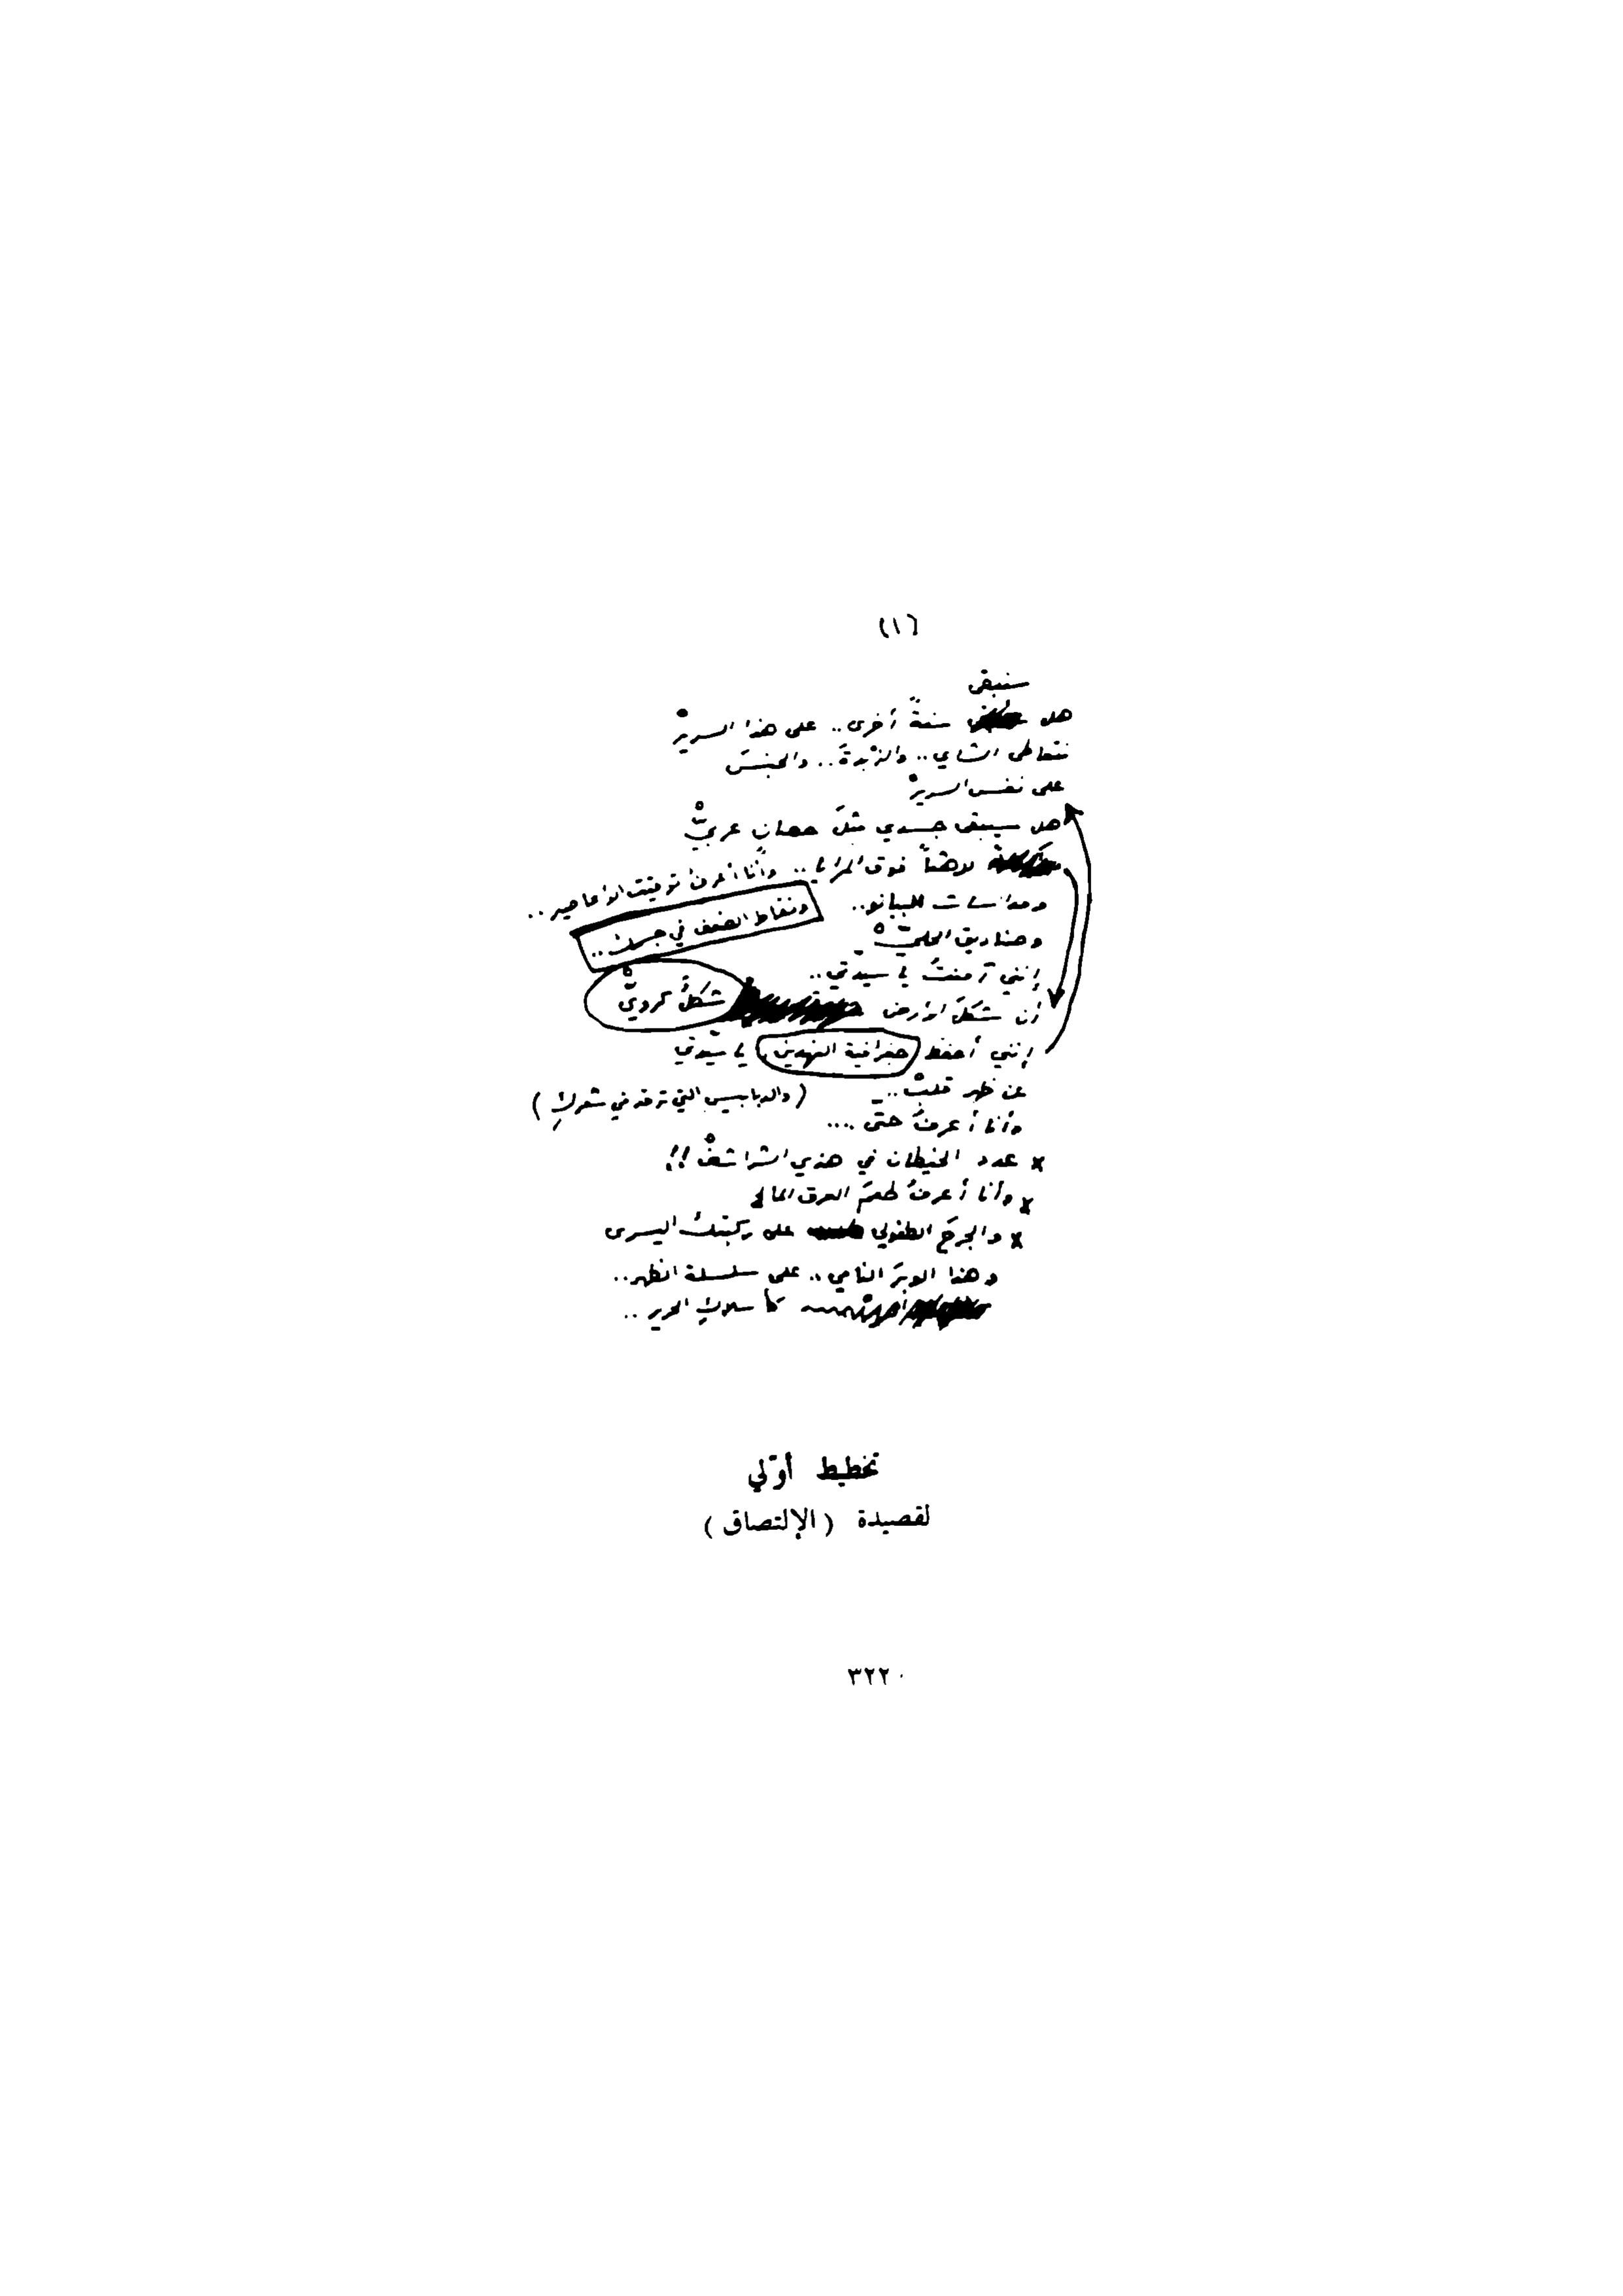 (١)
سنبقى
هل سنةً أخرى.. على هذا السريرْ
نتعاطى الشاي.. والزبدةَ.. والجنسَ
على نفس السريرْ
هل سيبقى جسدي مثلَ حصانٍ عربيّْ
لاهثاً فوق المرايا.. وأنا أعرفُ توقيت الأعاصير..
ودواسات البيانو..
ونقاط الضعف في جسمك..
وصناديق الحليّْ
إنني آمنتُ يا سيدتي..
أن شكلَ الأرض شكلٌ كرويّْ
إنني أحفظ جغرافية النهدين يا سيّدتي
عن ظهر قلبْ..
(والدبابيس التي ترقد في شعركِ)
وأنا أعرفُ حتى ....
× عدد الخيطان في هذي الشراشفْ!!
× وأنا أعرفُ طعمَ العرق المالح
× والجرحَ الطفولي على ركبتكِ اليسرى
وهذا الوبرَ النامي.. على سلسلة الظهر..
كأسلاكِ الحرير..
تخطيط أوّلي
لقصيدة (الإلتصاق)
٣٢٢٠